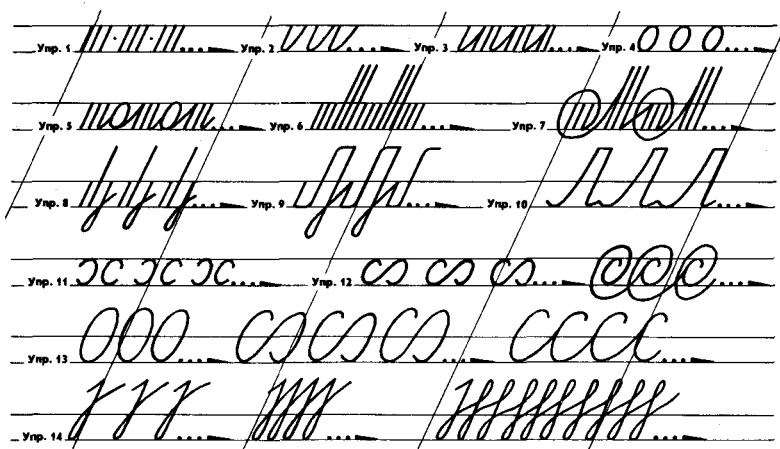 Упр. 1 Упр. 2 Упр. 3 Упр. 4
Упр. 5 Упр. 6 Упр. 7
Упр. 8 Упр. 9 Упр. 10
Упр. 11 Упр. 12
Упр. 13
Упр. 14